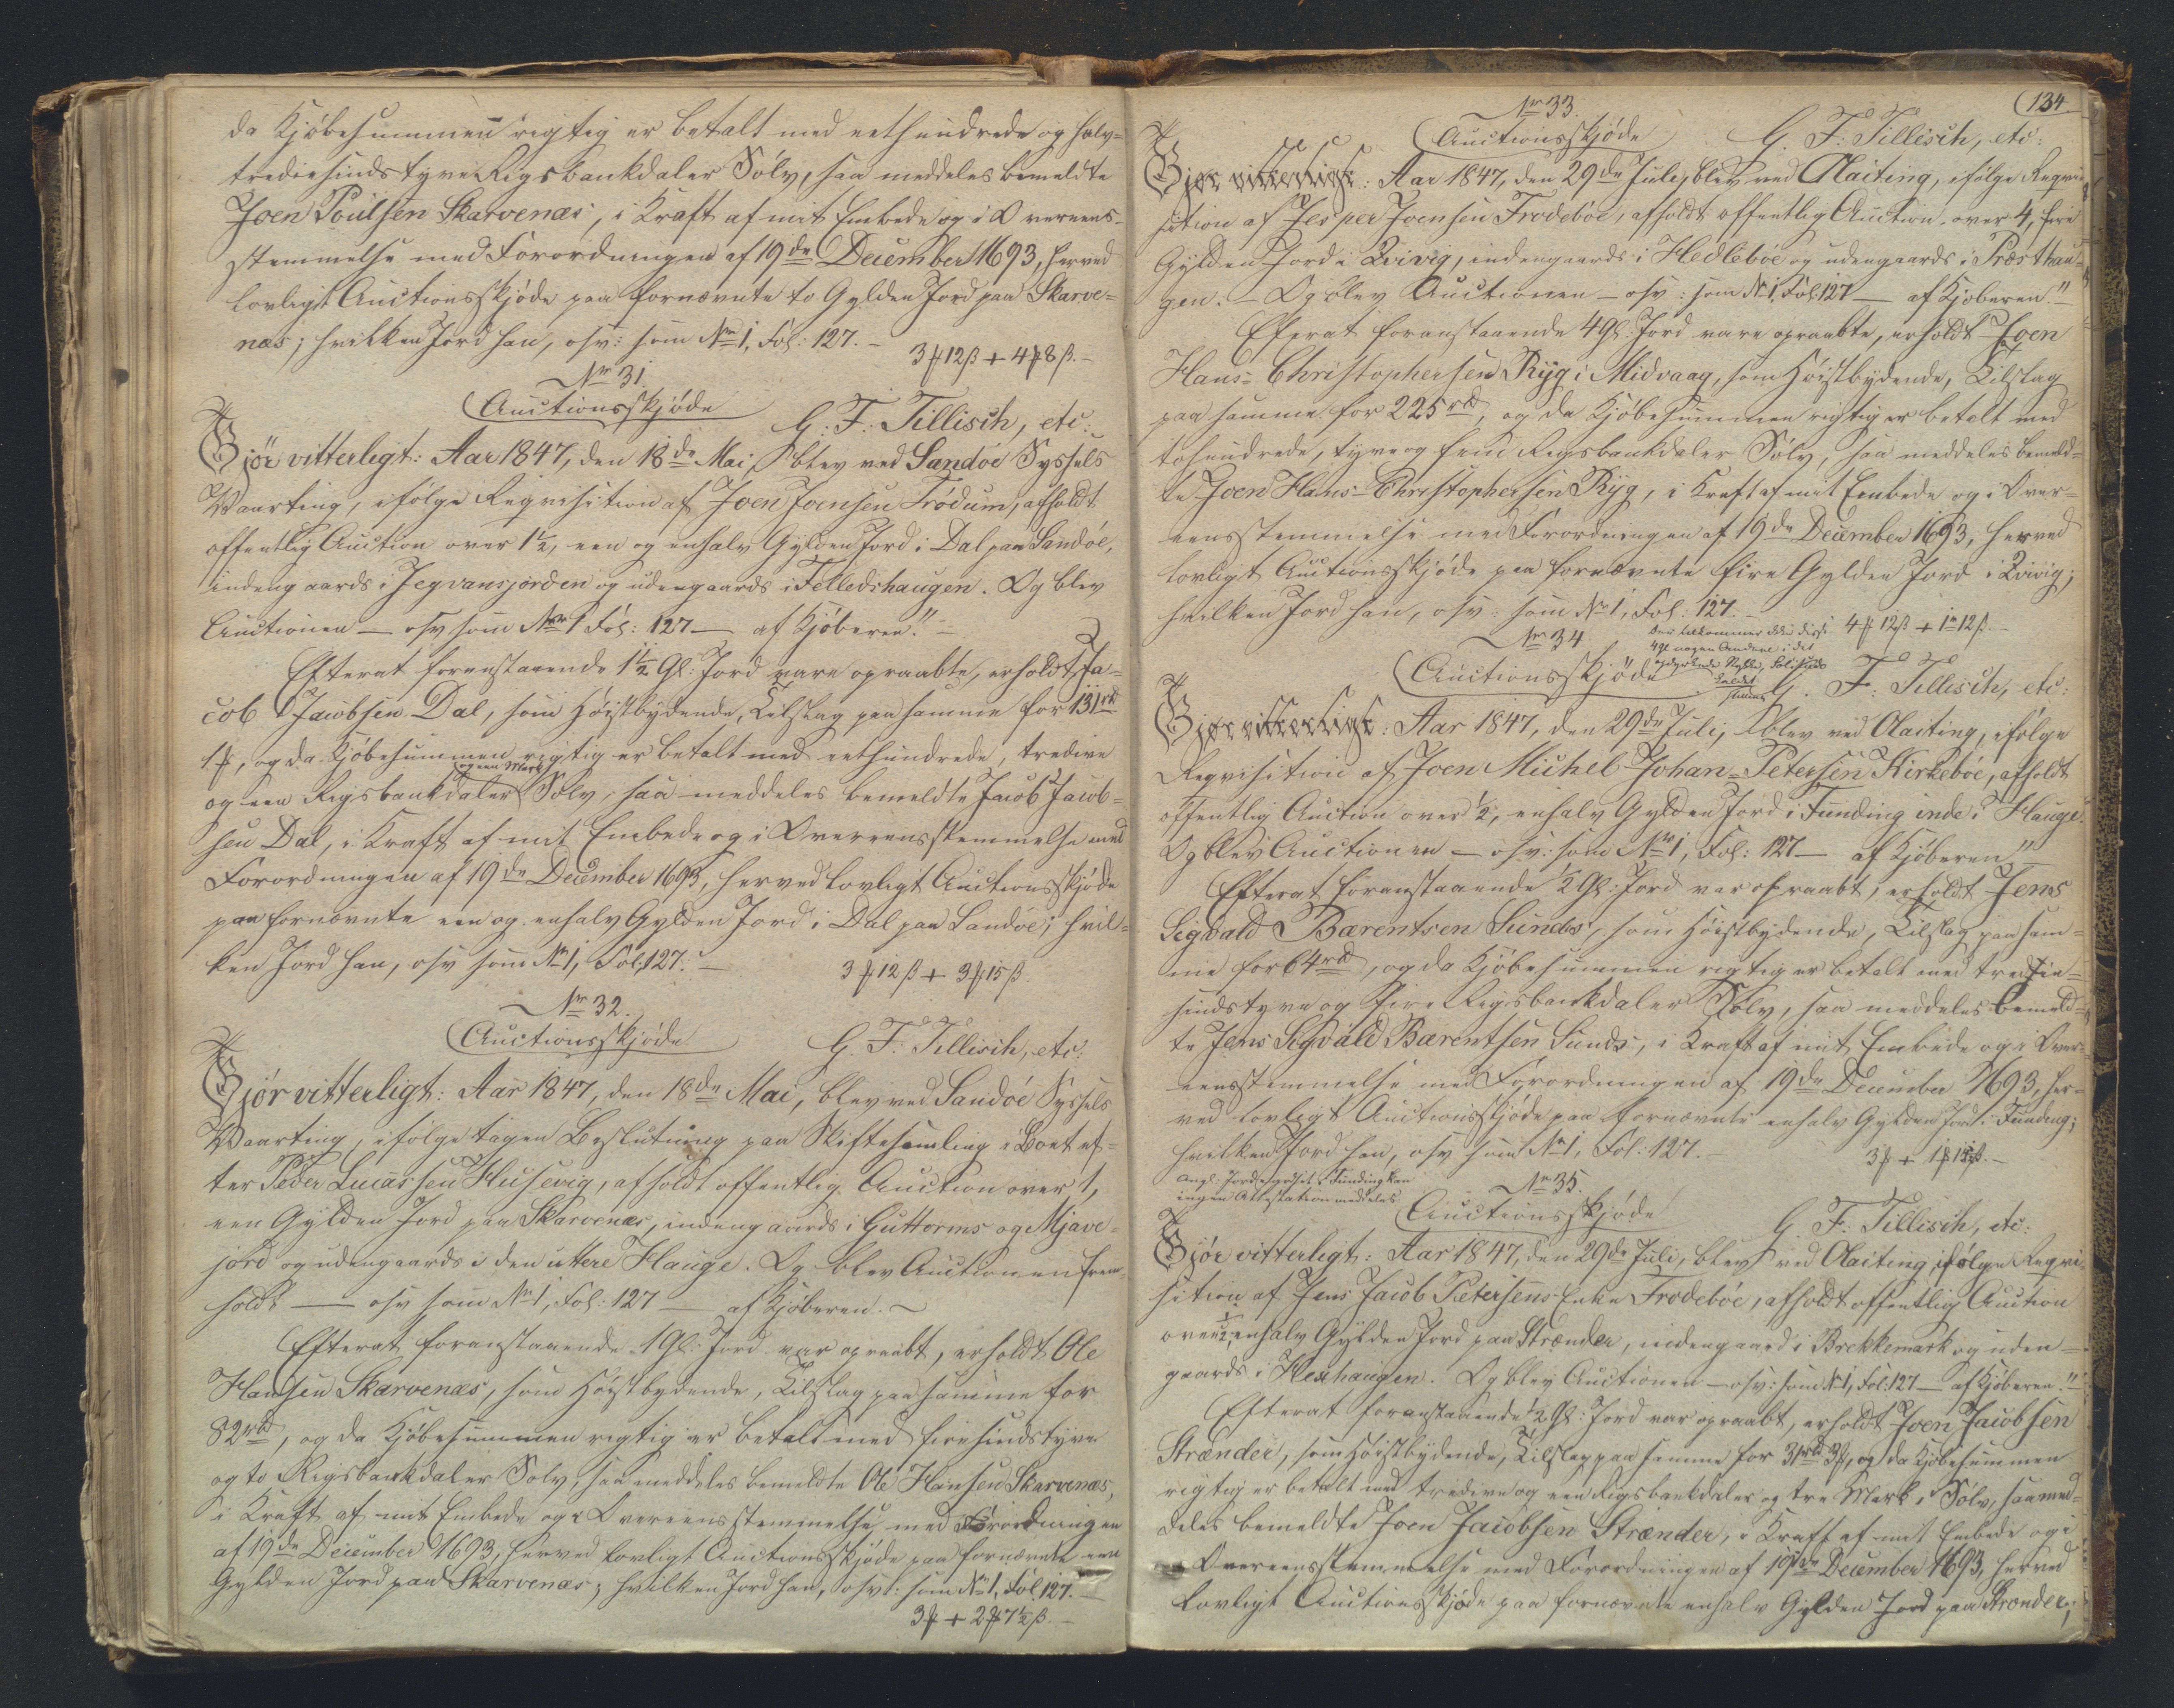 da Kjøbesummen rigtig er betalt med eethundrede og halv=
trediesindstyve Rigsbankdaler Sølv, saa meddeles bemeldte
Joen Poulsen Skarvenæs, i Kraft af mit Embede og i Overeens-
stemmelse med Forordningen af 19de December 1693, herved
lovligt Auctionsskjøde paa fornævnte to Gylden Jord paa Skarve=
næs; hvilken Jord han, osv: som No 1, Fol: 127. –
3 ℔ 12 ß + 4 ℔ 8 ß. –
Nr 31.
Auctionsskjøde
G. F. Tillisch, etc:
Gjör vitterligt: Aar 1847, den 18de Mai, blev ved Sandöe Syssels
Vaarting, ifølge Reqvisition af Joen Joensen Trödum, afholdt
offentlig Auction over 1½, een og enhalv Gylden Jord i Dal paa Sandöe,
indengaards i Jegvansjorden og udengaards i Felledshaugen. Og blev
Auctionen — osv som Nr 1 Fol: 127 — af Kjöberen." –
Efterat foranstaaende 1½ Gl: Jord vare opraabte, erholdt Ja=
cob Jacobsen Dal, som Höistbydende, Tilslag paa samme for 131 rd
1 ℔, og da Kjøbesummen rigtig er betalt med eethundrede, tredive
og een Mark
og een Rigsbankdaler Sølv, saa meddeles bemeldte Jacob Jacob=
sen Dal, i Kraft af mit Embede og i Overeensstemmelse med
Forordningen af 19de December 1693, herved lovligt Auctionsskjøde
paa fornævnte een og enhalv Gylden Jord i Dal paa Sandöe; hvil=
ken Jord han, osv som Nr 1, Fol: 127. –
3 ℔ 12 ß + 3 ℔ 15 ß.
Nr 32.
Auctionsskjøde
G. F. Tillisch, etc:
Gjör vitterligt: Aar 1847, den 18de Mai, blev ved Sandöe Syssels
Vaarting, ifølge tagen Beslutning paa Skiftesamling i Boet ef=
ter Peder Lucassen Husevig, afholdt offentlig Auction over 1,
een Gylden Jord paa Skarvenæs, indengaards i Guttorms og Mjave=
jord og udengaards i den ittere Hauge. Og blev Auctionen frem=
holdt — osv som Nr 1, Fol: 127 — af Kjøberen. ~
Efterat foranstaaende 1 Gl: Jord var opraabt, erholdt Ole
Hansen Skarvenæs, som Höistbydende, Tilslag paa samme for
82 rbd, og da Kjøbesummen rigtig er betalt med firesindstyve
og to Rigsbankdaler Sølv, saa meddeles bemeldte Ole Hansen Skarvenæs,
i Kraft af mit Embede og i Overeensstemmelse med Forordningen
af 19de December 1693, herved lovligt Auctionsskjøde paa fornævnte een
Gylden Jord paa Skarvenæs; hvilken Jord han, osv: som Nr 1, Fol. 127. –
3 ℔ + 2 ℔ 7½ ß. –
134
Nr 33.
Auctionsskjøde
G. F. Tillisch, etc:
Gjør vitterligt: Aar 1847, den 29de Juli, blev ved Olaiting, ifølge Reqvi=
sition af Jesper Joensen Frodeböe, afholdt offentlig Auction over 4, fire
Gylden Jord i Qvivig, indengaards i Hedleböe og udengaards i Præsthau=
gen. – Og blev Auctionen – osv: som Nr 1, Fol: 127 — af Kjøberen." –
Efterat foranstaaende 4 Gl: Jord vare opraabte, erholdt Joen
Hans= Christophersen Ryg i Midvaag, som Höistbydende, Tilslag
paa samme for 225 rd, og da Kjøbesummen rigtig er betalt med
tohundrede, tyve og fem Rigsbankdaler Sølv, saa meddeles bemeld=
te Joen Hans= Christophersen Ryg, i Kraft af mit Embede og i Over=
eensstemmelse med Forordningen af 19de December 1693, herved
lovligt Auctionsskjøde paa fornævnte fire Gylden Jord i Qvivig;
hvilken Jord han, osv: som Nr 1, Fol: 127. –
4 ℔ 12 ß + 1 rd 12 ß. –
Nr 34
Der tilkommer ikke disse
4 gl nogen Andeel i det
Auctionsskjøde
G. F. Tillisch, etc:
Gjør vitterligt: Aar 1847, den 29de Juli, blev ved Olaiting, ifølge
Reqvisition af Joen Michel Johan= Petersen Kirkeböe, afholdt
offentlig Auction over ½, enhalv Gylden Jord i Funding inde i Hauge.
Og blev Auctionen — osv: som Nr 1, Fol: 127 — af Kjöberen." –
Efterat foranstaaende ½ Gl: Jord var opraabt, erholdt Jens
Sigvald Bærentsen Sunds, som Höistbydende, Tilslag paa sam=
me for 64 rd, og da Kjøbesummen rigtig er betalt med tredsin=
sindstyve og fire Rigsbankdaler Sølv, saa meddeles bemeld=
te Jens Sigvald Bærentsen Sunds, i Kraft af mit Embede og i Over=
eensstemmelse med Forordningen af 19de December 1693, her=
ved lovligt Auctionsskjøde paa fornævnte enhalv Gylden Jord i Funding;
hvilken Jord han, osv som Nr 1, Fol: 127. –
3 ℔ + 1 ℔ 15 ß. –
Ang. Jordegodset i Funding kan
ingen Attestation meddeles
Nr 35.
Auctionsskjøde
G. F. Tillisch, etc:
Gjör vitterligt: Aar 1847, den 29de Juli, blev ved Olaiting, ifølge Reqvi=
sition af Jens Jacob Petersens Enke Frodeböe, afholdt offentlig Auction
over ½, enhalv Gylden Jord paa Strænder, indengaard i Brekkemark og uden=
gaards i Hexhaugen. Og blev Auctionen – osv: som Nr 1, Fol: 127 — af Kjøberen." –
Efterat foranstaaende ½ Gl: Jord var opraabt, erholdt Joen Jacobsen
Strænder, som Höistbydende, Tilslag paa samme for 31 rd 3 ℔, og da Kjøbesummen
rigtig er betalt med tredive og een Rigsbankdaler og tre Mark, Sølv, saa med=
deles bemeldte Joen Jacobsen Strænder, i Kraft af mit Embede og i
Overeensstemmelse med Forordningen af 19de December 1693, herved
lovligt Auctionsskjøde paa fornævnte enhalv Gylden Jord paa Strænder;